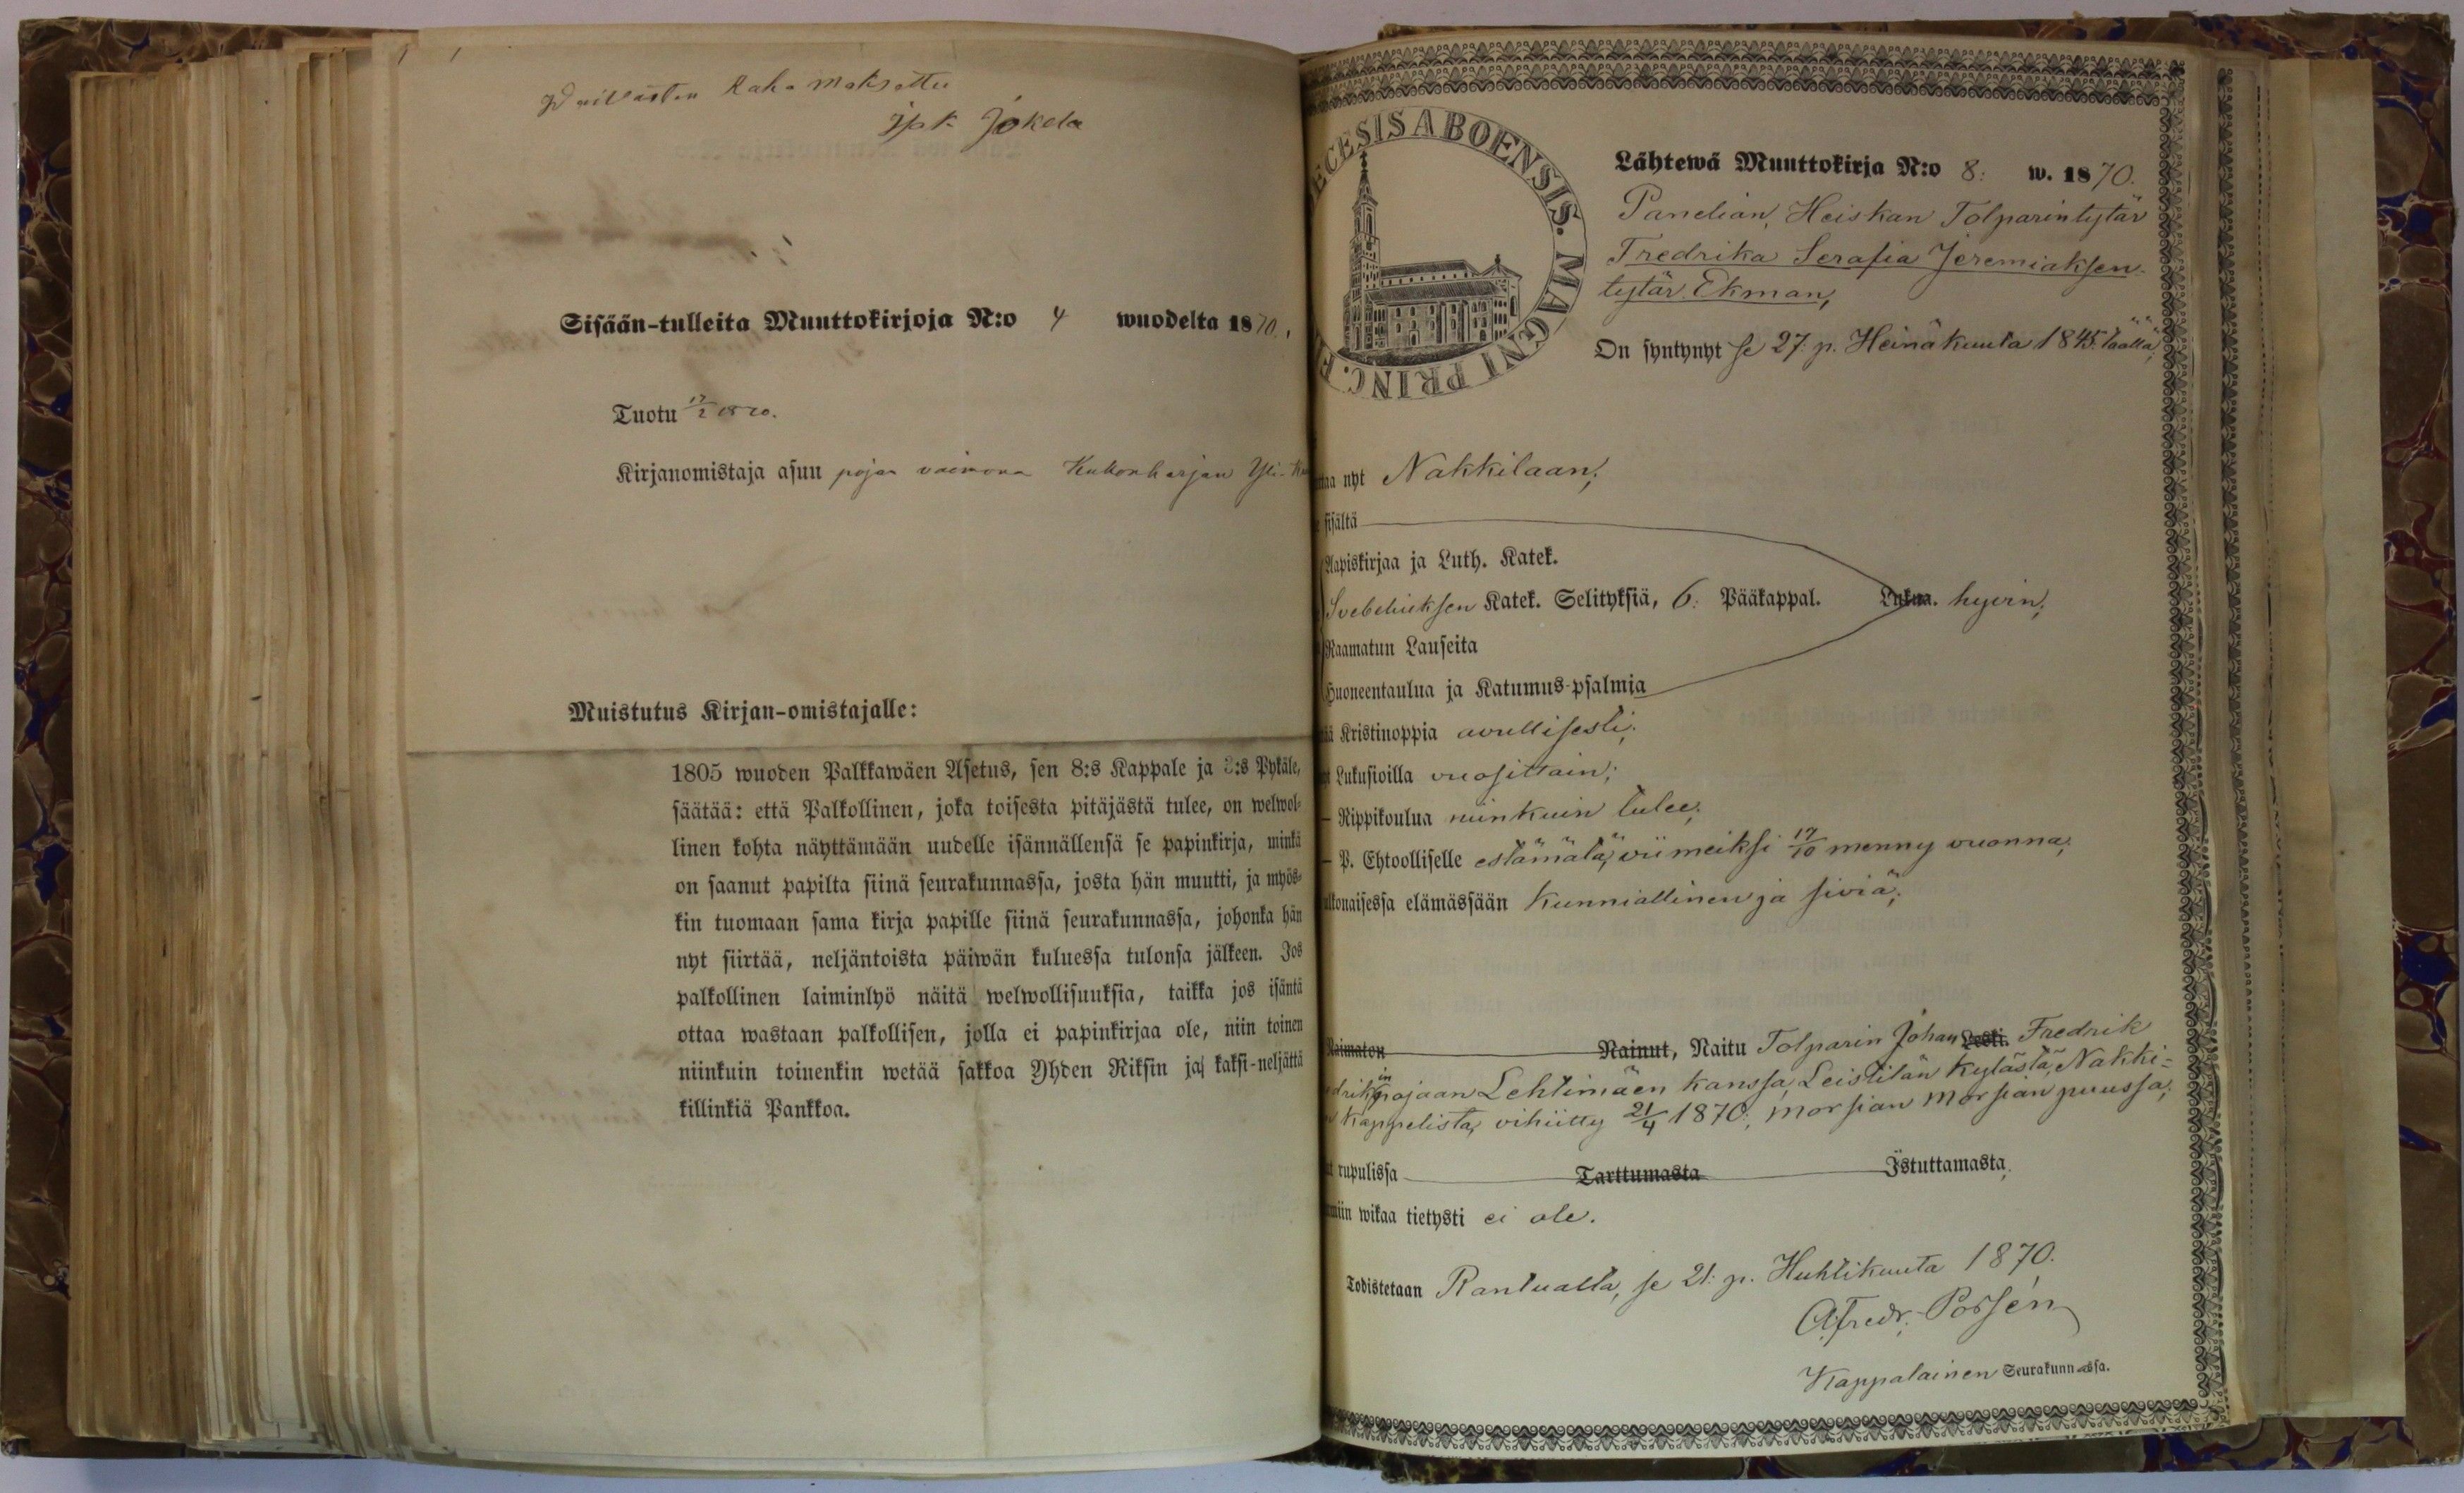 Waivaisten Raha Maksettu
Jpk Jokela
Sisään-tulleita Muuttokirjoja N:o 4 wuodelta 1870.
Tuotu 17/2 1870.
Kirjanomistaja asuu pojan vaimona Kukonharjan Yli-
Muistutus Kirjan-omistajalle:
1805 wuoden Palkkawäen Asetus, sen 8:s Kappale ja 3:s Pykäle,
säätää: että Palkollinen, joka toisesta pitäjästä tulee, on welwol-
linen kohta näyttämään uudelle isännällensä se papinkirja, minkä
on saanut papilta siinä seurakunnassa, josta hän muutti, ja myös-
kin tuomaan sama kirja papille siinä seurakunnassa, johonka hän
nyt siirtää, neljäntoista päiwän kuluessa tulonsa jälkeen. Jos
palkollinen laiminlyö näitä welwollisuuksia, taikka jos isäntä
ottaa wastaan palkollisen, jolla ei papinkirjaa ole, niin toinen
niinkuin toinenkin wetää sakkoa Yhden Riksin ja kaksi-neljättä
killinkiä Pankkoa.
ECESIS ABOENSIS. MAGNI PRINC. F
Lähtewä Muuttokirja N:o 8: w. 1870.
Panelian, Heiskan Tolparintytär
Fredrika Serafia Jeremiaksen-
tytär Ekman,
On syntynyt se 27. p. Heinäkuuta 1845. täällä;
taa nyt Nakkilaan;
sisältä
Aapiskirjaa ja Luth. Katek.
Svebeliuksen Katek. Selityksiä, 6: Pääkappal. Lukua. hyvin;
Raamatun Lauseita
Huoneentaulua ja Katumus-psalmia
ää Kristinoppia avullisesti;
Lukusioilla vuosittain;
— Rippikoulua niinkuin tulee;
— P. Ehtoolliselle estämätä, viimeiksi 17/10 menny vuonna;
ulkonaisessa elämässään kunniallinen ja siviä;
Naimaton Nainut, Naitu Tolparin Johan Leski. Fredrik
edrikinpojaan Lehtimäen kanssa, Leistilän Kylästä, Nakki-
n Kappelista, vihiitty 21/4 1870; morsian morsian puussa;
ut rupulissa Tarttumasta Istuttamasta,
miin wikaa tietysti ei ole.
Todistetaan Rantualla, se 21: p. Huhtikuuta 1870.
A. Fredr. Porsén
Kappalainen Seurakunnassa.